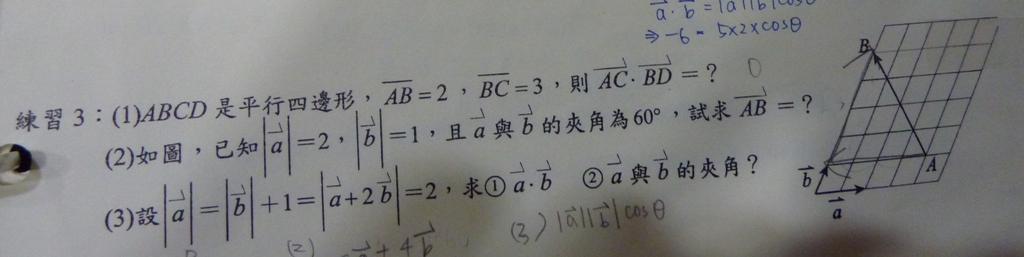 a⃗·b⃗ = |a||b|cosθ
⇒ -6 = 5×2×cosθ
練習3：(1)ABCD 是平行四邊形，AB=2，BC=3，則 AC⃗·BD⃗ =？ 0
(2)如圖，已知|a⃗|=2，|b⃗|=1，且 a⃗ 與 b⃗ 的夾角為60°，試求 AB⃗ =？
(3)設|a⃗|=|b⃗|+1=|a⃗+2b⃗|=2，求① a⃗·b⃗ ② a⃗ 與 b⃗ 的夾角？
(2) -a⃗ + 4b⃗
(3) |a⃗||b⃗|cosθ
B
A
b⃗
a⃗